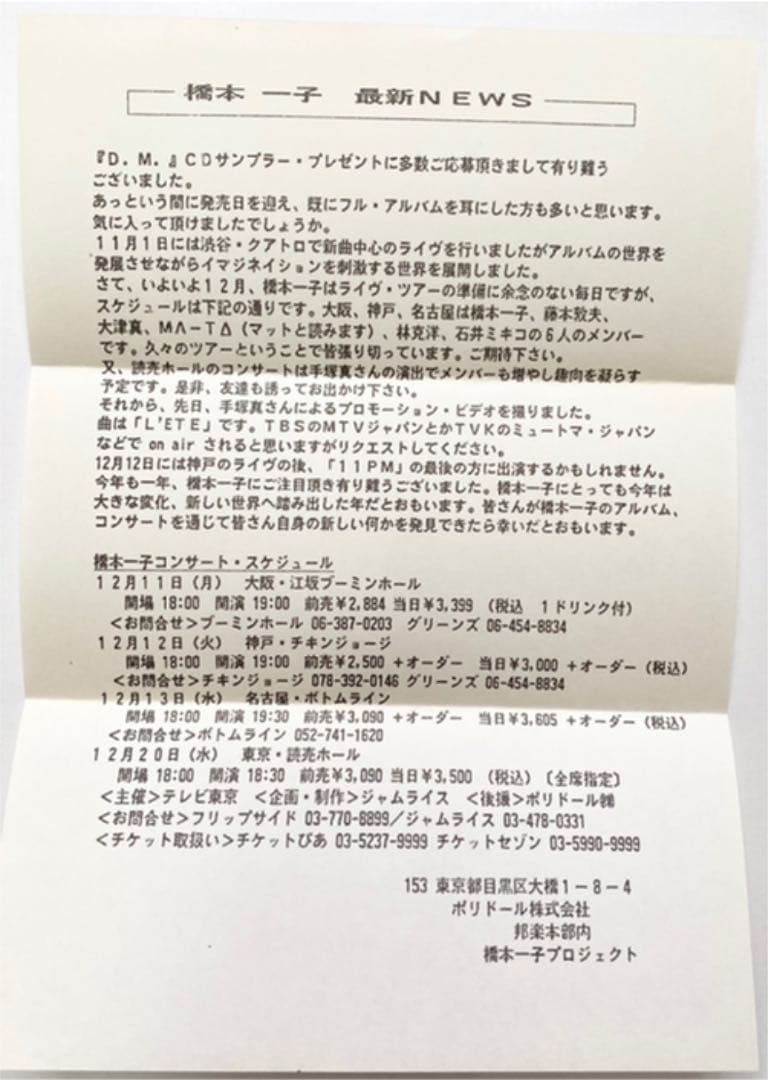 橋本 一子 最新NEWS
『D．M．』CDサンプラー・プレゼントに多数ご応募頂きまして有り難う
ございました。
あっという間に発売日を迎え、既にフル・アルバムを耳にした方も多いと思います。
気に入って頂けましたでしょうか。
11月1日には渋谷・クアトロで新曲中心のライヴを行いましたがアルバムの世界を
発展させながらイマジネイションを刺激する世界を展開しました。
さて、いよいよ12月、橋本一子はライヴ・ツアーの準備に余念のない毎日ですが、
スケジュールは下記の通りです。大阪、神戸、名古屋は橋本一子、藤本敦夫、
大津真、MΛ－TΔ（マットと読みます）、林克洋、石井ミキコの6人のメンバー
です。久々のツアーということで皆張り切っています。ご期待下さい。
又、読売ホールのコンサートは手塚真さんの演出でメンバーも増やし趣向を凝らす
予定です。是非、友達も誘ってお出かけ下さい。
それから、先日、手塚真さんによるプロモーション・ビデオを撮りました。
曲は「L'ETE」です。TBSのMTVジャパンとかTVKのミュートマ・ジャパン
などで on air されると思いますがリクエストしてください。
12月12日には神戸のライヴの後、「11PM」の最後の方に出演するかもしれません。
今年も一年、橋本一子にご注目頂き有り難うございました。橋本一子にとっても今年は
大きな変化、新しい世界へ踏み出した年だとおもいます。皆さんが橋本一子のアルバム、
コンサートを通じて皆さん自身の新しい何かを発見できたら幸いだとおもいます。
橋本一子コンサート・スケジュール
12月11日（月） 大阪・江坂ブーミンホール
開場 18:00 開演 19:00 前売¥2,884 当日¥3,399 （税込 1ドリンク付）
＜お問合せ＞ブーミンホール 06-387-0203 グリーンズ 06-454-8834
12月12日（火） 神戸・チキンジョージ
開場 18:00 開演 19:00 前売¥2,500 ＋オーダー 当日¥3,000 ＋オーダー（税込）
＜お問合せ＞チキンジョージ 078-392-0146 グリーンズ 06-454-8834
12月13日（水） 名古屋・ボトムライン
開場 18:00 開演 19:30 前売¥3,090 ＋オーダー 当日¥3,605 ＋オーダー（税込）
＜お問合せ＞ボトムライン 052-741-1620
12月20日（水） 東京・読売ホール
開場 18:00 開演 18:30 前売¥3,090 当日¥3,500 （税込）〔全席指定〕
＜主催＞テレビ東京 ＜企画・制作＞ジャムライス ＜後援＞ポリドール㈱
＜お問合せ＞フリップサイド 03-770-8899／ジャムライス 03-478-0331
＜チケット取扱い＞チケットぴあ 03-5237-9999 チケットセゾン 03-5990-9999
153 東京都目黒区大橋1－8－4
ポリドール株式会社
邦楽本部内
橋本一子プロジェクト